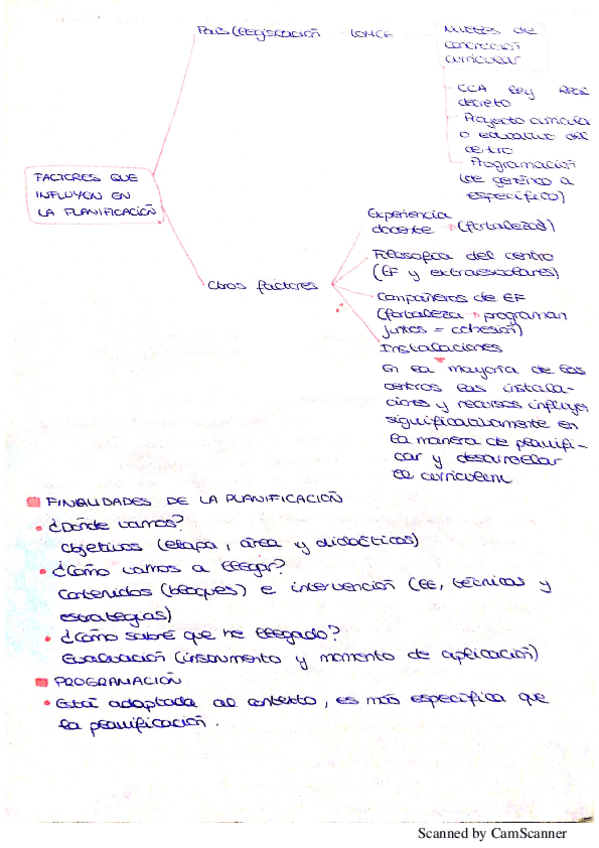 País (legislación LOMCE
Niveles de
concreción
curricular
CCAA Ley
decreto
Proyecto curricular
o educativo del
centro
Programación
(de genérico a
específico)
FACTORES QUE
INFLUYEN EN
LA PLANIFICACIÓN
Otros factores
Experiencia
docente (fortalezas)
Filosofía del centro
(EF y extraescolares)
Compañeros de EF
(fortaleza programan
juntos = cohesión)
Instalaciones
En la mayoría de los
centros las instala-
ciones y recursos influyen
significativamente en
la manera de planifi-
car y desarrollar
el curriculum
FINALIDADES DE LA PLANIFICACIÓN
• ¿Dónde vamos?
objetivos (etapa, área y didácticos)
• ¿Cómo vamos a llegar?
Contenidos (bloques) e intervención (EE, técnicas y
estrategias)
• ¿Cómo sabré que he llegado?
Evaluación (instrumento y momento de aplicación)
PROGRAMACIÓN
• Está adaptada al contexto, es más específica que
la planificación.
Scanned by CamScanner